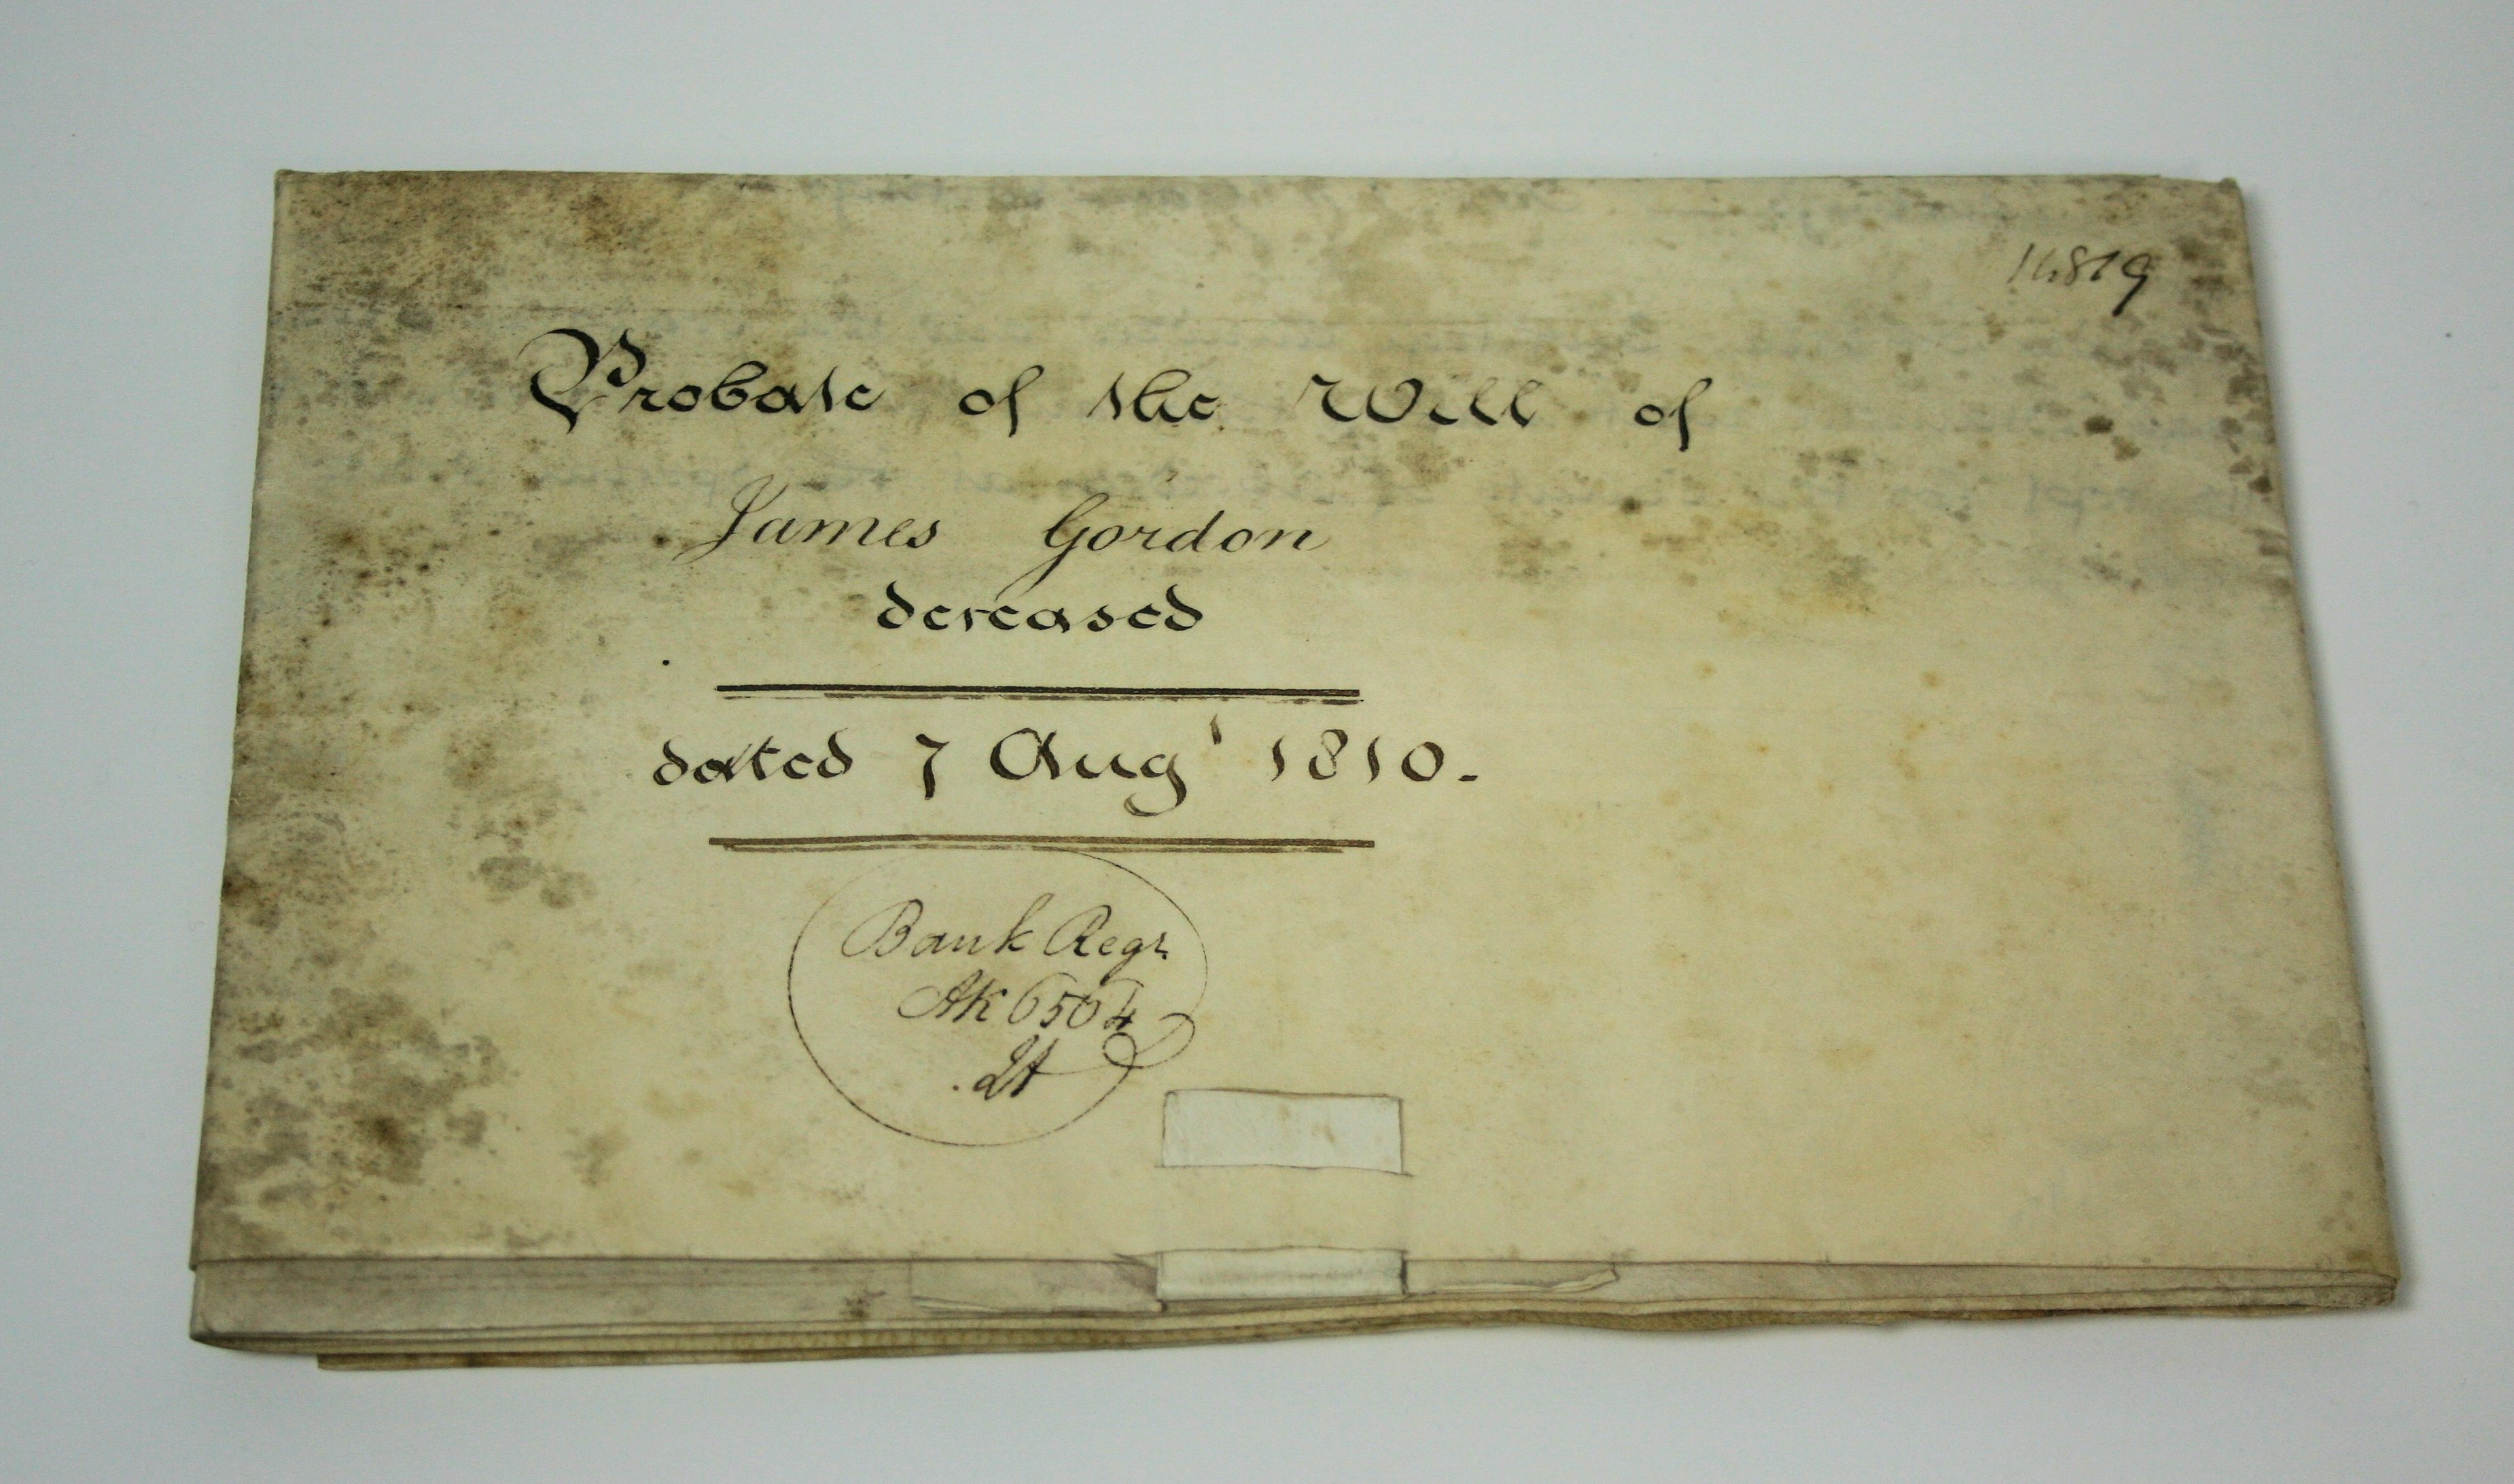 14819
Probate of the Will of
James Gordon
deceased
dated 7 Augt 1810.
Bank Regr
AK 6504